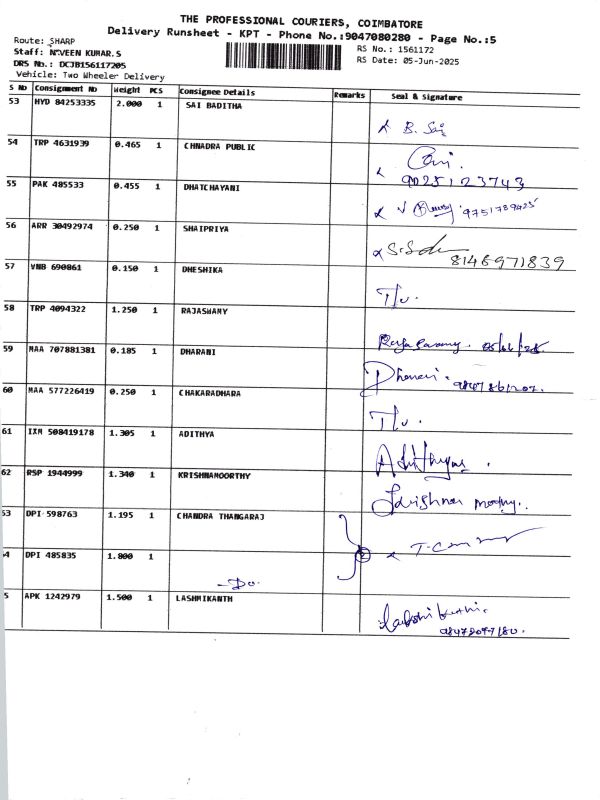 THE PROFESSIONAL COURIERS, COIMBATORE
Delivery Runsheet - KPT - Phone No.:9047080280 - Page No.:5
Route: SHARP
RS No.: 1561172
Staff: NAVEEN KUMAR.S
RS Date: 05-Jun-2025
DRS No.: DCJB156117205
Vehicle: Two Wheeler Delivery
S No Consignment No Weight PCS Consignee Details Remarks Seal & Signature
53 HYD 84253335 2.000 1 SAI BADITHA
B. Sai
54 TRP 4631939 0.465 1 CHNADRA PUBLIC
9025123743
55 PAK 485533 0.455 1 DHATCHAYANI
9751789425
56 ARR 30492974 0.250 1 SHAIPRIYA
8146971839
57 VNB 690861 0.150 1 DHESHIKA
T/u.
58 TRP 4094322 1.250 1 RAJASWAMY
05/06/25
59 MAA 707881381 0.185 1 DHARANI
Dharani.
60 MAA 577226419 0.250 1 CHAKARADHARA
T/u.
61 IXM 508419178 1.305 1 ADITHYA
62 RSP 1944999 1.340 1 KRISHNAMOORTHY
Krishna moorthy.
53 DPI 598763 1.195 1 CHANDRA THANGARAJ
2
54 DPI 485835 1.800 1
-Do.
5 APK 1242979 1.500 1 LASHMIKANTH